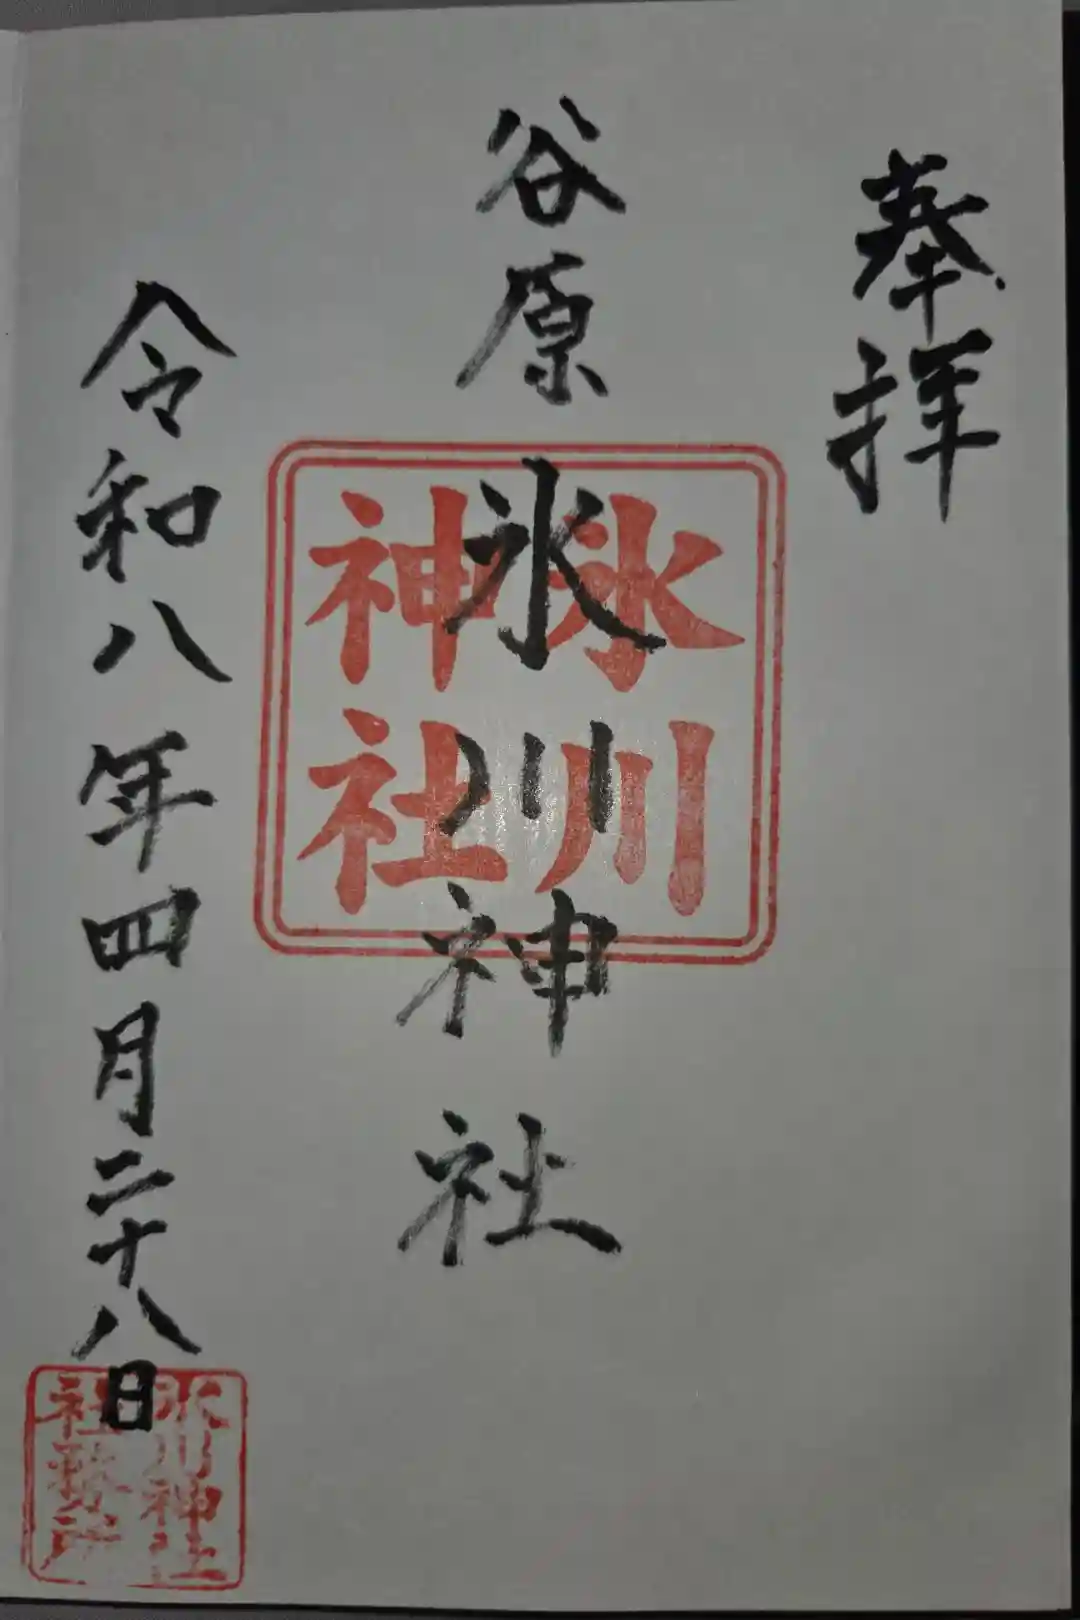 奉拝
谷原氷川神社
氷川
神社
令和八年四月二十八日
氷川神社
社務所